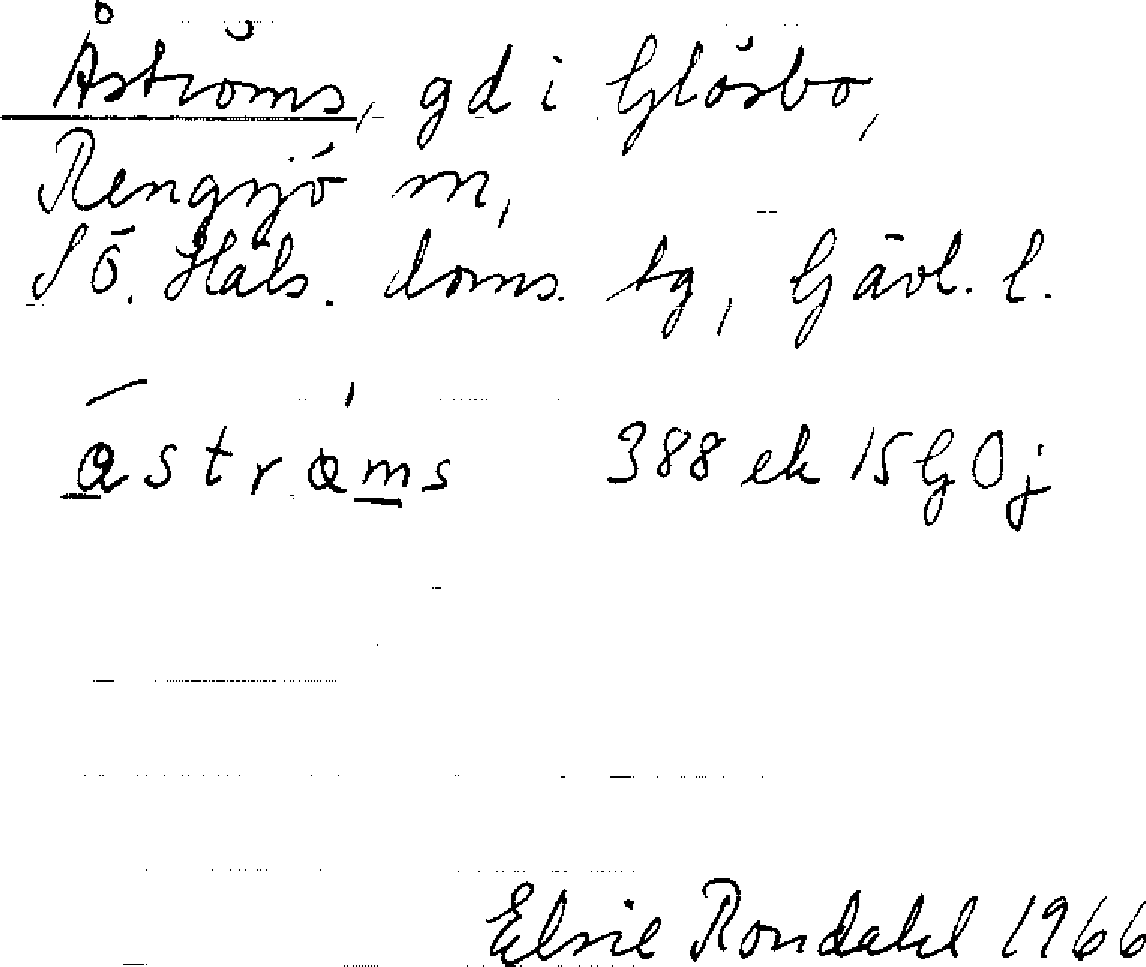 Åströms, gd i Glösbo,
Rengsjö sn,
SÖ. Häls. doms. tg, Gävl. l.
åströms 388 ek 15G0j
Elsie Rondahl 1966